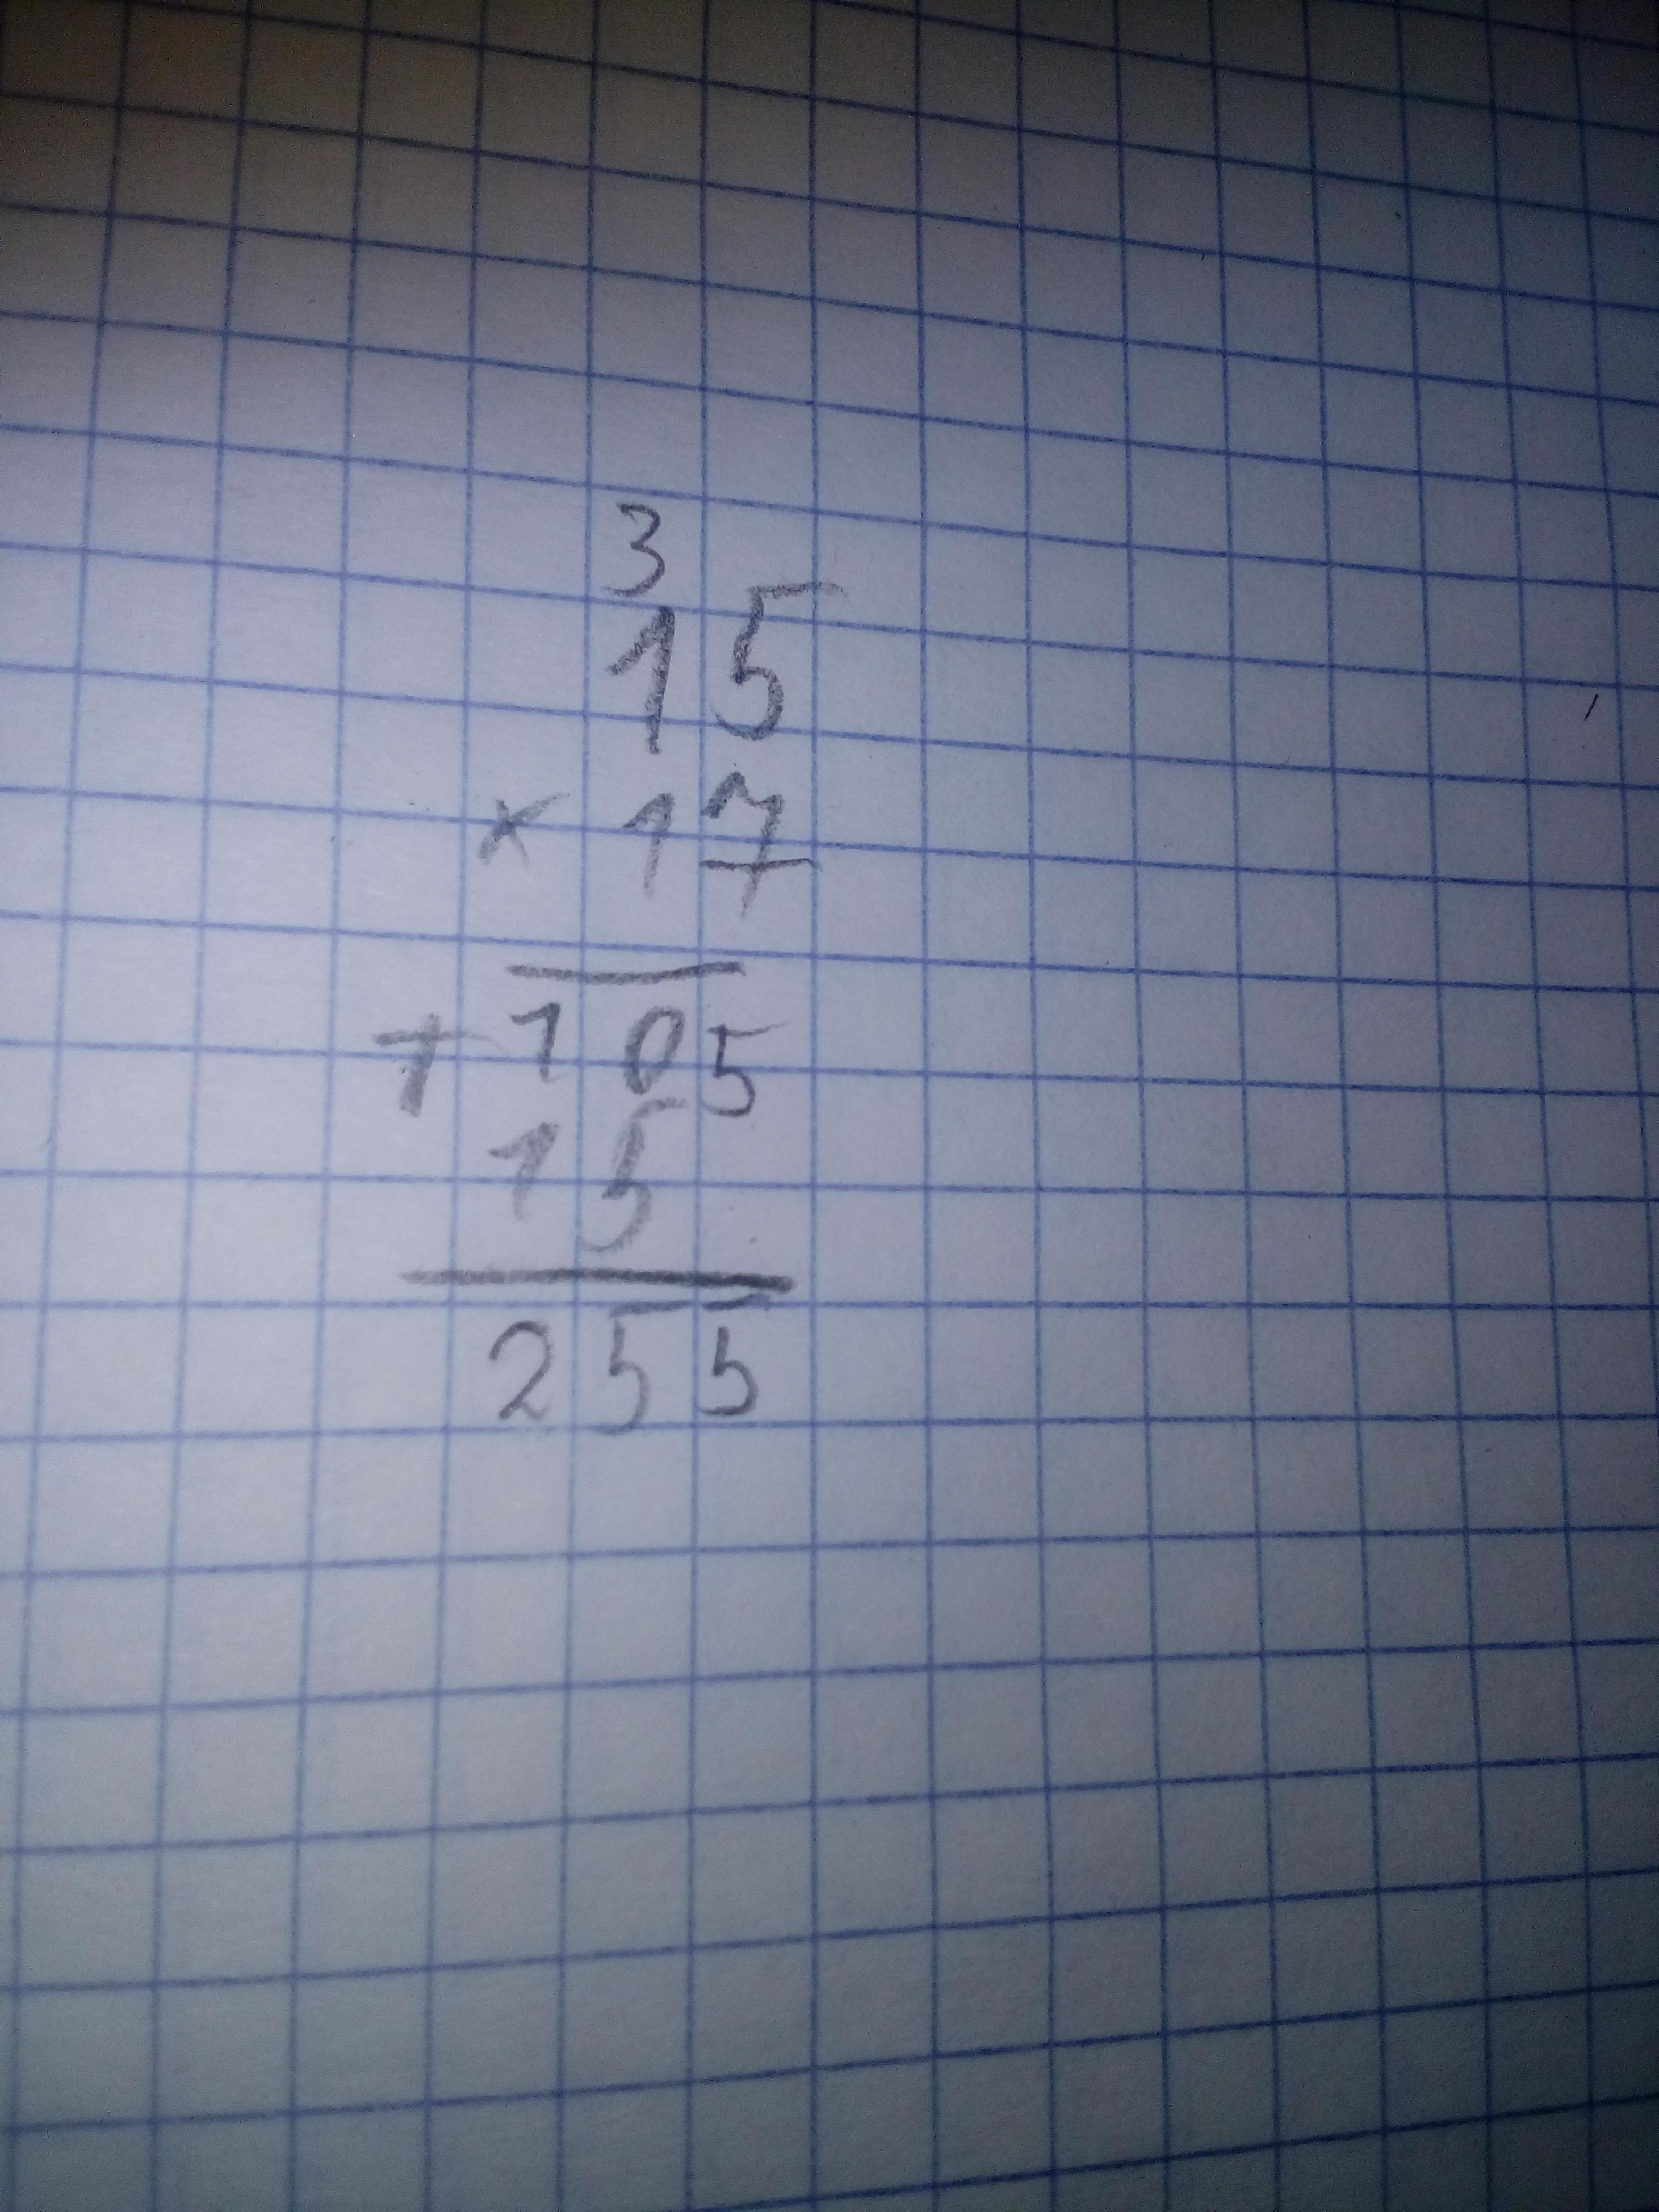 3
15
× 17
+ 105
15
255